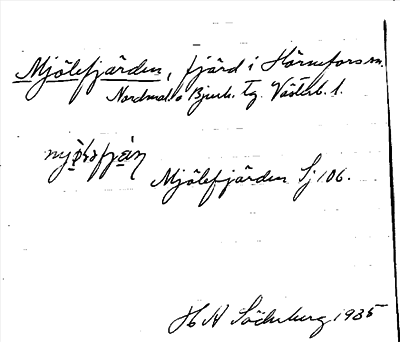 Mjölefjärden, fjärd i Hörnefors sn.
Nordmal. o Bjurh. tg. Västerb. l.
Mjölefjärden Sj 106.
H A Söderberg 1935